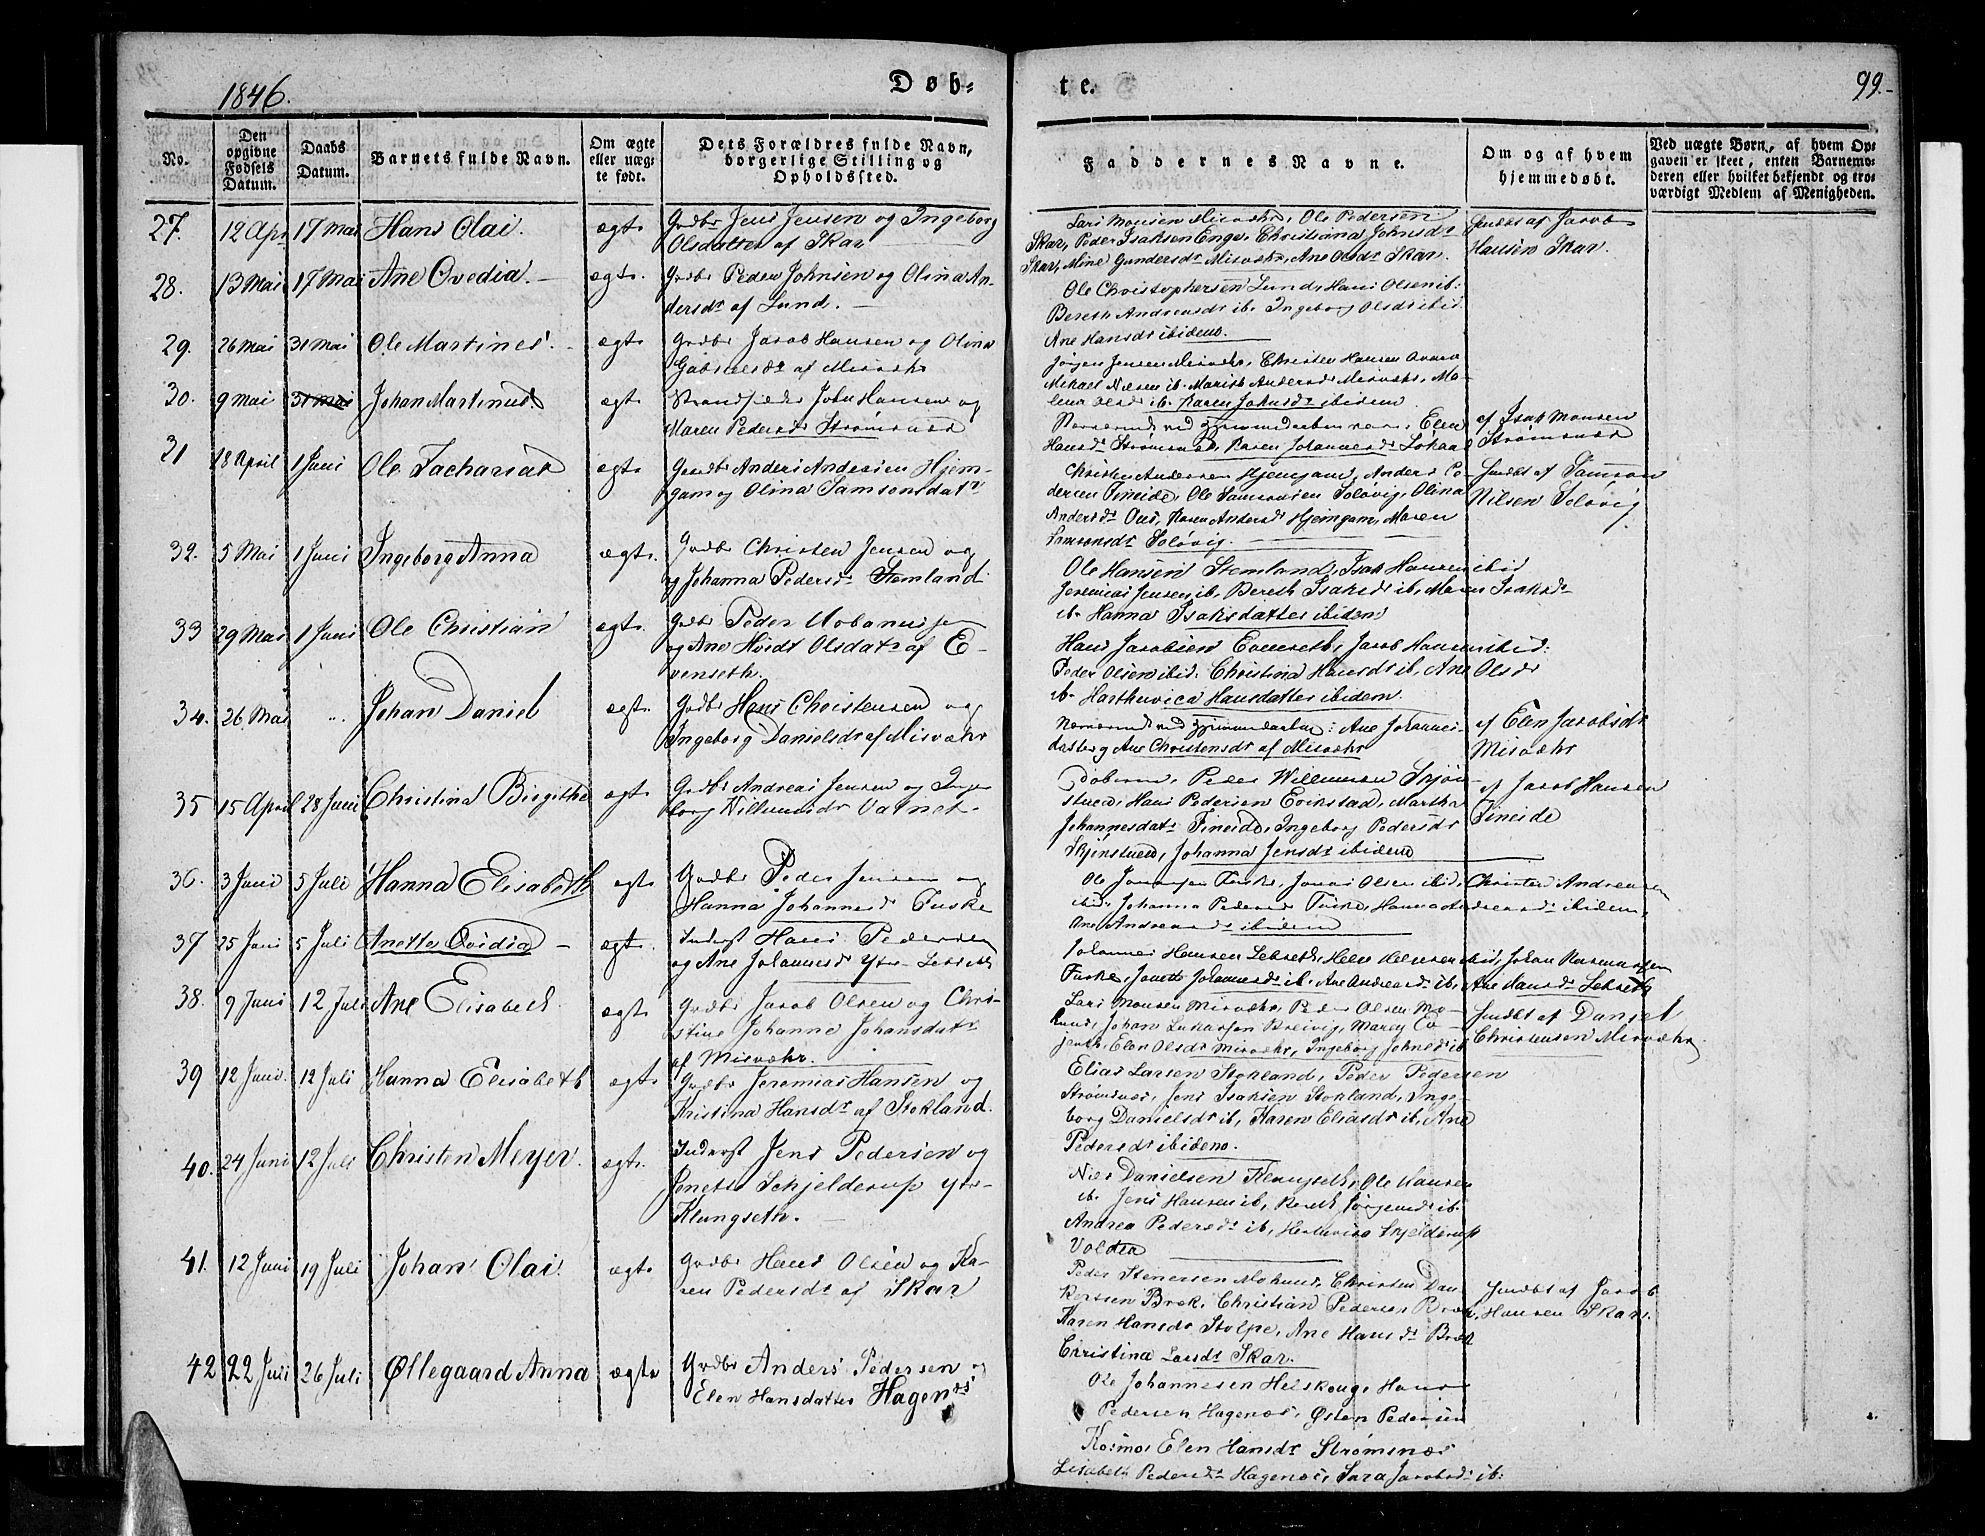 1846.
Døb-
te.
99.
No.
Den opgivne Fødsels Datum.
Daabs Datum.
Barnets fulde Navn.
Om ægte eller uægte født.
Dets Forældres fulde Navn, borgerlige Stilling og Opholdssted.
Faddernes Navne.
Om og af hvem hjemmedøbt.
Ved uægte Børn, af hvem Opgaven er skeet, enten Barnemoderen eller hvilket bekjendt og troværdigt Medlem af Menigheden.
27. 12 Apr 17 Mai Hans Olai. ægt. Gadbr Jens Jensen og Ingeborg
Olsdatter af Skar
Lars Monsen Misvæhr, Ole Pedersen
Skar, Peder Isaksen Enge, Christiana Johnsdr
Skar, Mine Gundersdr Misvæhr, Ane Olsdr Skar.
hmdbt af Jacob
Hansen Skar.
28. 13 Mai 17 Mai Ane Ovedia. ægt. Gadbr Peder Johnsen og Olina An-
dersdr af Lund.
Ole Christophersen Lund, Hans Olsen ib.
Bereth Andreasdr ib. Ingeborg Olsdr ibid.
Ane Hansdr ibidem.
29. 26 Mai 31 Mai Ole Martines. ægt. Gadbr Jacob Hansen og Olina
Gabrielsdr af Misvæhr
Jørgen Jensen Misvæhr, Christen Hansen
Mikael Nilsen ib. Marith Andersdr Misvæhr, Ma-
lena Olsdr ib. Karen Johnsdr ibidem
30. 9 Mai 31 Mai Johan Martinus ægt. Strandsidder John Hansen og
Maren Pedersdr Strømsnæs
Nærværende ved Hjemmedaaben vare: Elen
Hansdr Strømsnæs, Karen Johannesdr
af Isak Monsen
Strømsnæs
31 18 April 1 Juni Ole Zacharias ægt. Gaardbr Anders Andersen Hjem-
gam og Olina Samsonsdatr
Christen Andersen Hjemgam, Anders Pe-
dersen Fineide, Ole Samsonsen Soløvig, Olina
Andersdr Ous, Karen Andersdr Hjemgam, Maren
Samsonsdr Soløvig.
hmdbt af Samson
Nilsen Soløvig
32. 5 Mai 1 Juni Ingeborg Anna ægt. Gadbr Christen Jensen og
og Johanna Pedersdr Stemland.
Ole Hansen Stemland, Isak Hansen ibid
Jeremias Jensen ib. Bereth Isaksdr ib. Maren Isaksdr
ib. Hanna Isaksdatter ibidem
33 29 Mai 1 Juni Ole Christian ægt. Gadbr Peder Urbanussen
og Ane Hvidt Olsdatr af E-
venseth.
Hans Jacobsen Evenseth, Jacob Hansen ibid:
Peder Olsen ibid: Christina Hansdr ib, Ane Olsdr
ib. Harthevica Hansdatter ibidem.
34. 26 Mai " Johan Daniel ægt. Gadbr Hans Christensen og
Ingeborg Danielsdr af Misvæhr
Nærværende ved Hjemmedaaben: Ane Johannes-
datter og Ane Christensdr af Misvæhr
af Elen Jacobsdr
Misvæhr
35 15 April 28 Juni Christina Birgitha ægt. Gadbr Andreas Jensen og Inge-
borg Willumsdr Vatnet.
Peder Willumsen Skjøn-
stuen, Hans Pedersen Evikstad, Martha
Johannesdatr Fineide, Ingeborg Pedersdr
Skjønstuen, Johanna Jensdr ibidem
af Jacob Hansen
Fineide
36. 3 Juni 5 Juli Hanna Elisabeth ægt. Gadbr Peder Jensen og
Hanna Johannesdr Fuske
Ole Jonassen Fuske, Jonas Olsen ibid, Christen Andreasen
ibid, Johanna Pedersdr Fuske, Hanna Andreasdr ibidem,
Ane Andreasdr ibidem
37 25 Juni 5 Juli Anette Ovidia ægt. Inderst Hans Pedersen
og Ane Johannesdr Ytre Lekseth
Johannes Hansen Lekseth, ibid, Johan Rasmussen
Fuske, Jonette Johannesdr ib. Ane Andreasdr ib. Ane Hansdr Lekseth
38. 9 Juni 12 Juli Ane Elisabeth. ægt. Gadbr Jacob Olsen og Chri-
stine Johanne Johansdatr
af Misvæhr.
Lars Monsen Misvæhr, Peder Olsen Mo-
Johan Lukassen Breivig, Maren
Elen Olsdr Misvæhr, Ingeborg Johnsdr ib
hmdbt af Daniel
Christensen Misvæhr
39 12 Juni. 12 Juli Hanna Elisabeth ægt. Gadbr Jeremias Hansen og
Kristina Hansdr af Stokland.
Elias Larsen Stokland, Peder Pedersen
Strømsnæs, Jens Isaksen Stokland, Inge-
borg Danielsdr ib, Karen Eliasdr ib, Ane
Pedersdr ibidem.
40. 24 Juni 12 Juli Christen Meyer. ægt. Inderst Jens Pedersen og
Jonette Schjelderup Ytre
Klungseth.
Nils Danielsen Klungseth, Ole Hansen
ib. Jens Hansen ib, Bereth Jørgensdr ib.
Andrea Pedersdr ib, Hertevica Skjelderup
Volden
41. 12 Juni 19 Juli Johan Olai. ægt. Gadbr Hans Olsen og Ka-
ren Pedersdr af Skar
Peder Stenersen Christen Dan-
kertsen Bræk, Christian Pedersen Bræk,
Karen Hansdr Stolpe, Ane Hansdr Bræk
Christina Larsdr Skar.
hmdbt af Jacob
Hansen Skar.
42 22 Juli 26 Juli Øllegaard Anna ægt. Gadbr Anders Pedersen og
Elen Hansdatter Hagenæs
Ole Johannesen Helskoug, Hans
Pedersen Hagenæs, Østen Pedersen
Kosmo, Elen Hansdr Strømsnæs
Lisabeth Pedersdr Hagenæs, Sara Jacobsdr ib.